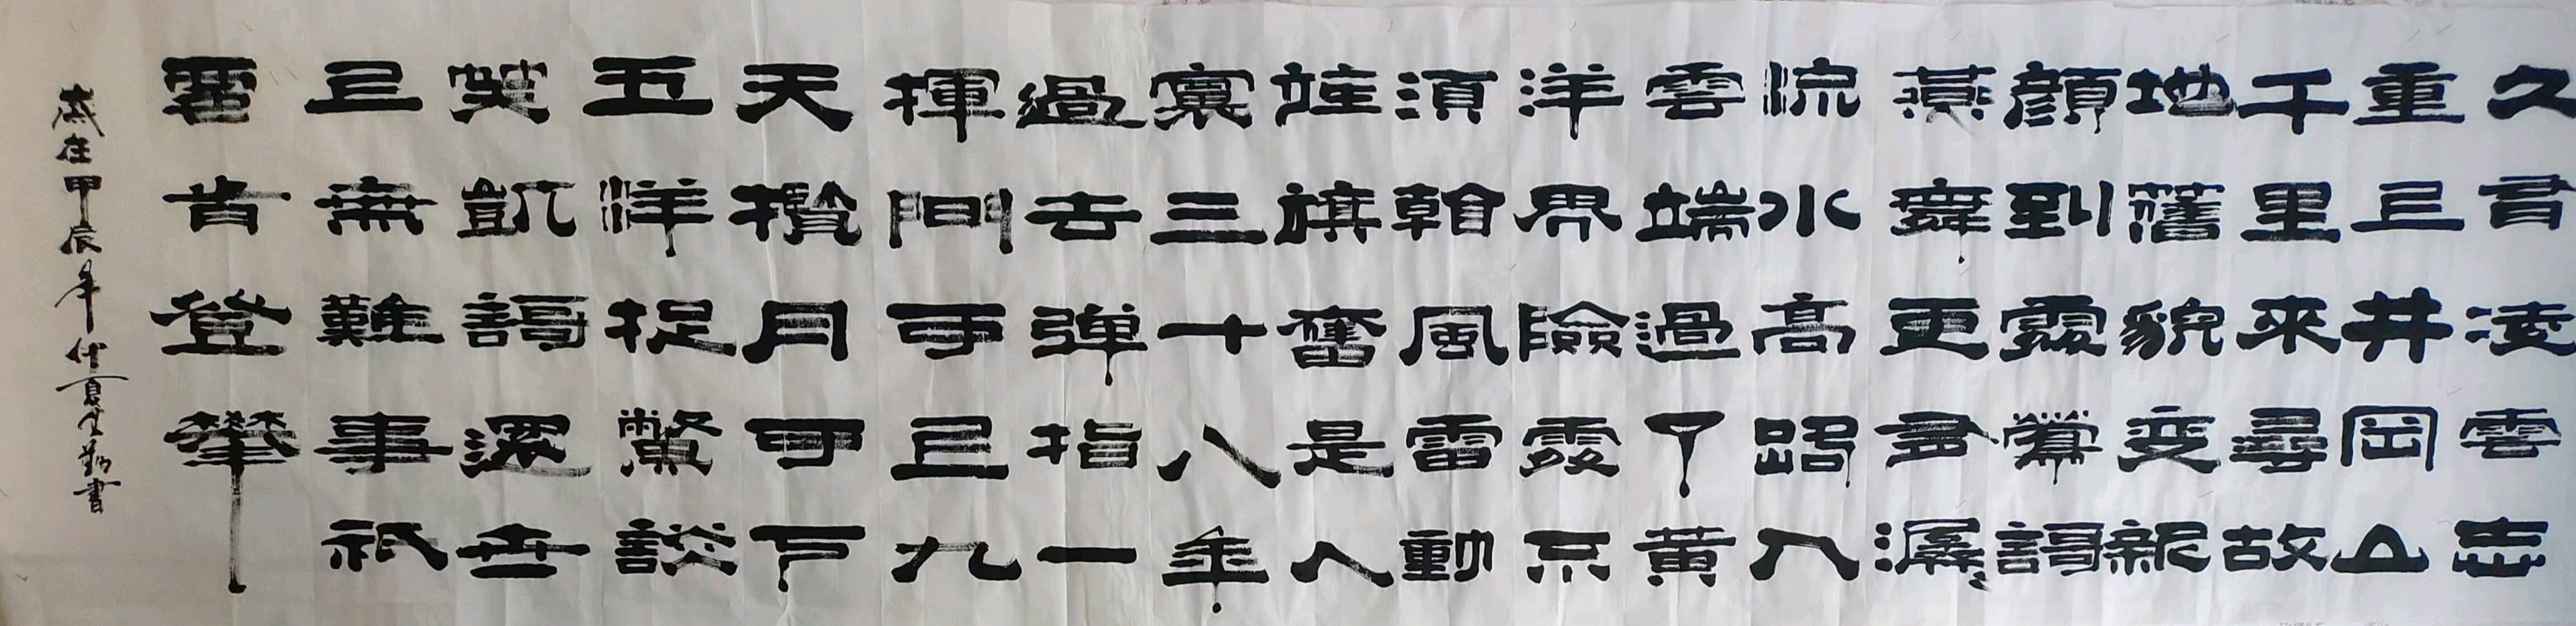 久有凌雲志
重上井岡山
千里來尋故
地舊貌變新
顏到處鶯歌
燕舞更多潺々
流水高路入
雲端過了黃
洋界險處不
須看風雷動
旌旗奮是人
寰三十八年
過去彈指一
揮間可上九
天攬月可下
五洋捉鱉談
笑凱歌還世
上無難事祇
要肯登攀
歲在甲辰年仲夏生勤書